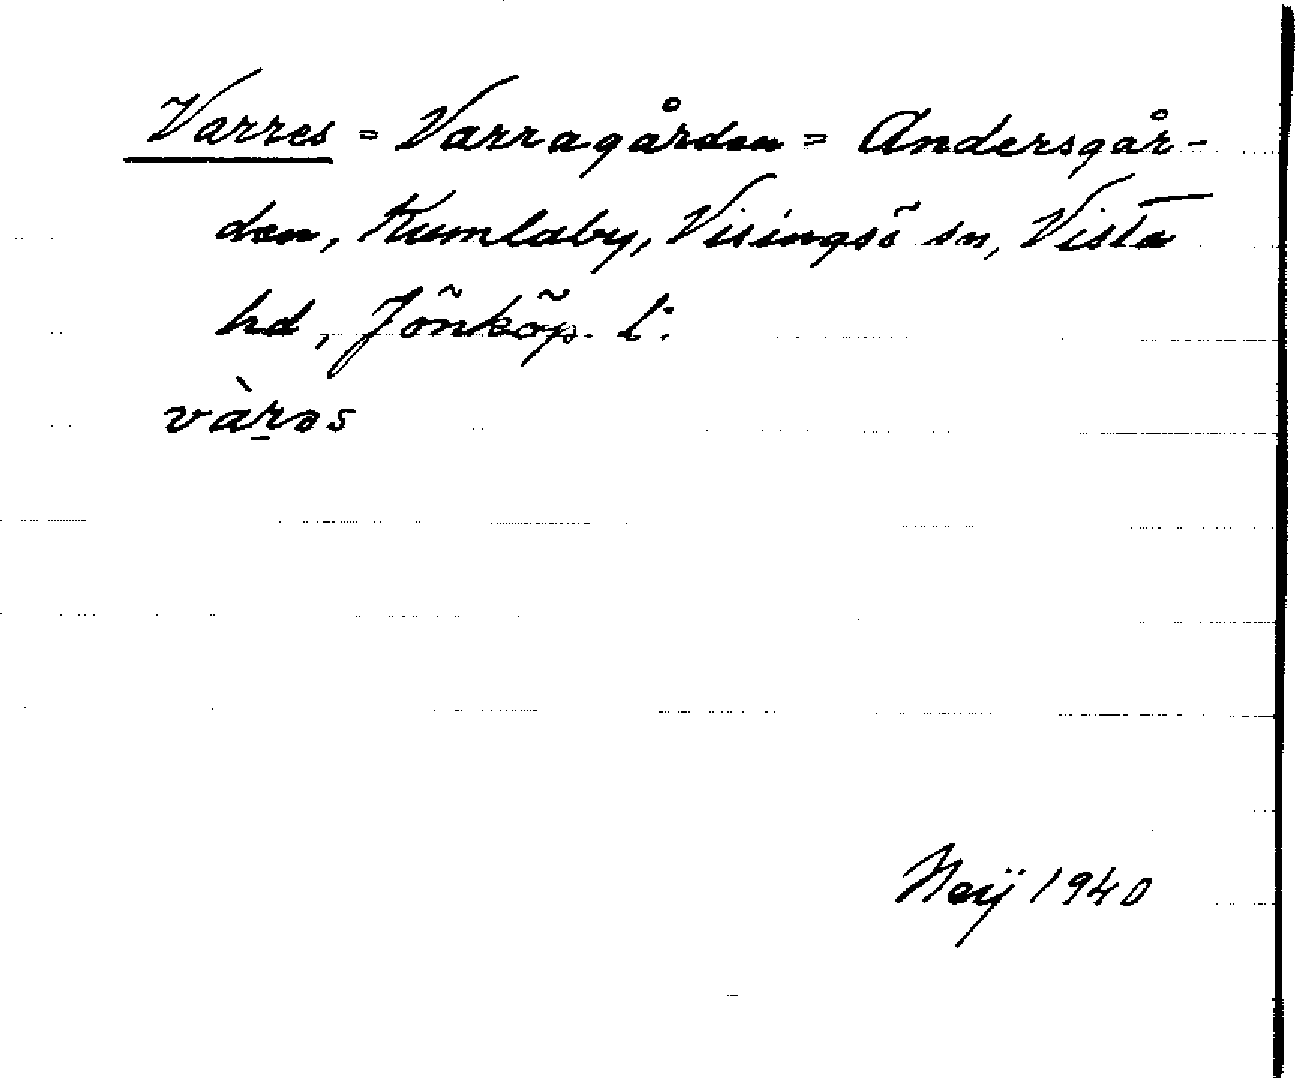 Varres = Varragården = Andersgår-
den, Kumlaby, Visingsö sn, Vista
hd, Jönköp. l:
vàr̠os
1940